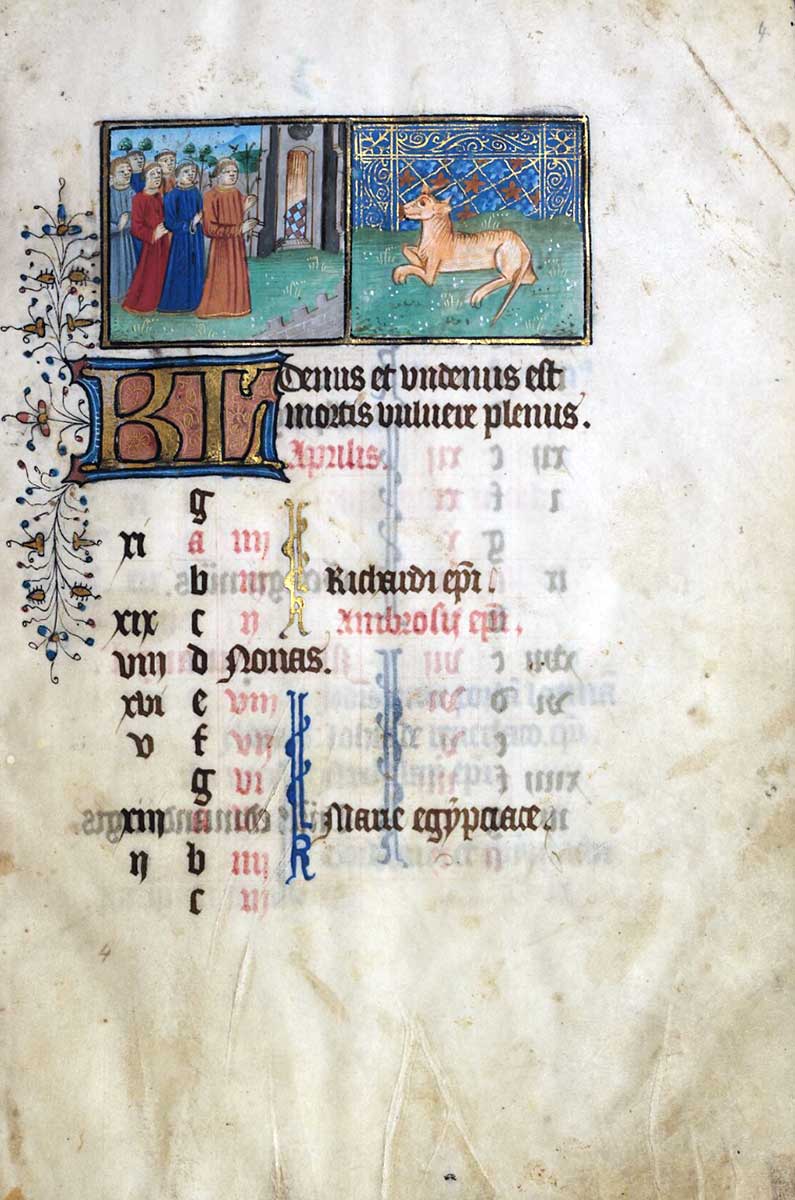 4
KL Denus et vndenus est
mortis vulnere plenus.
Aprilis.
g
xi a iiij
b iij Richardi epi.
xix c ij Ambrosij epi.
viij d Nonas.
xvi e viij
v f vij
g vi
xiij a Marie egypciace.
ij b iiij
c iij
4